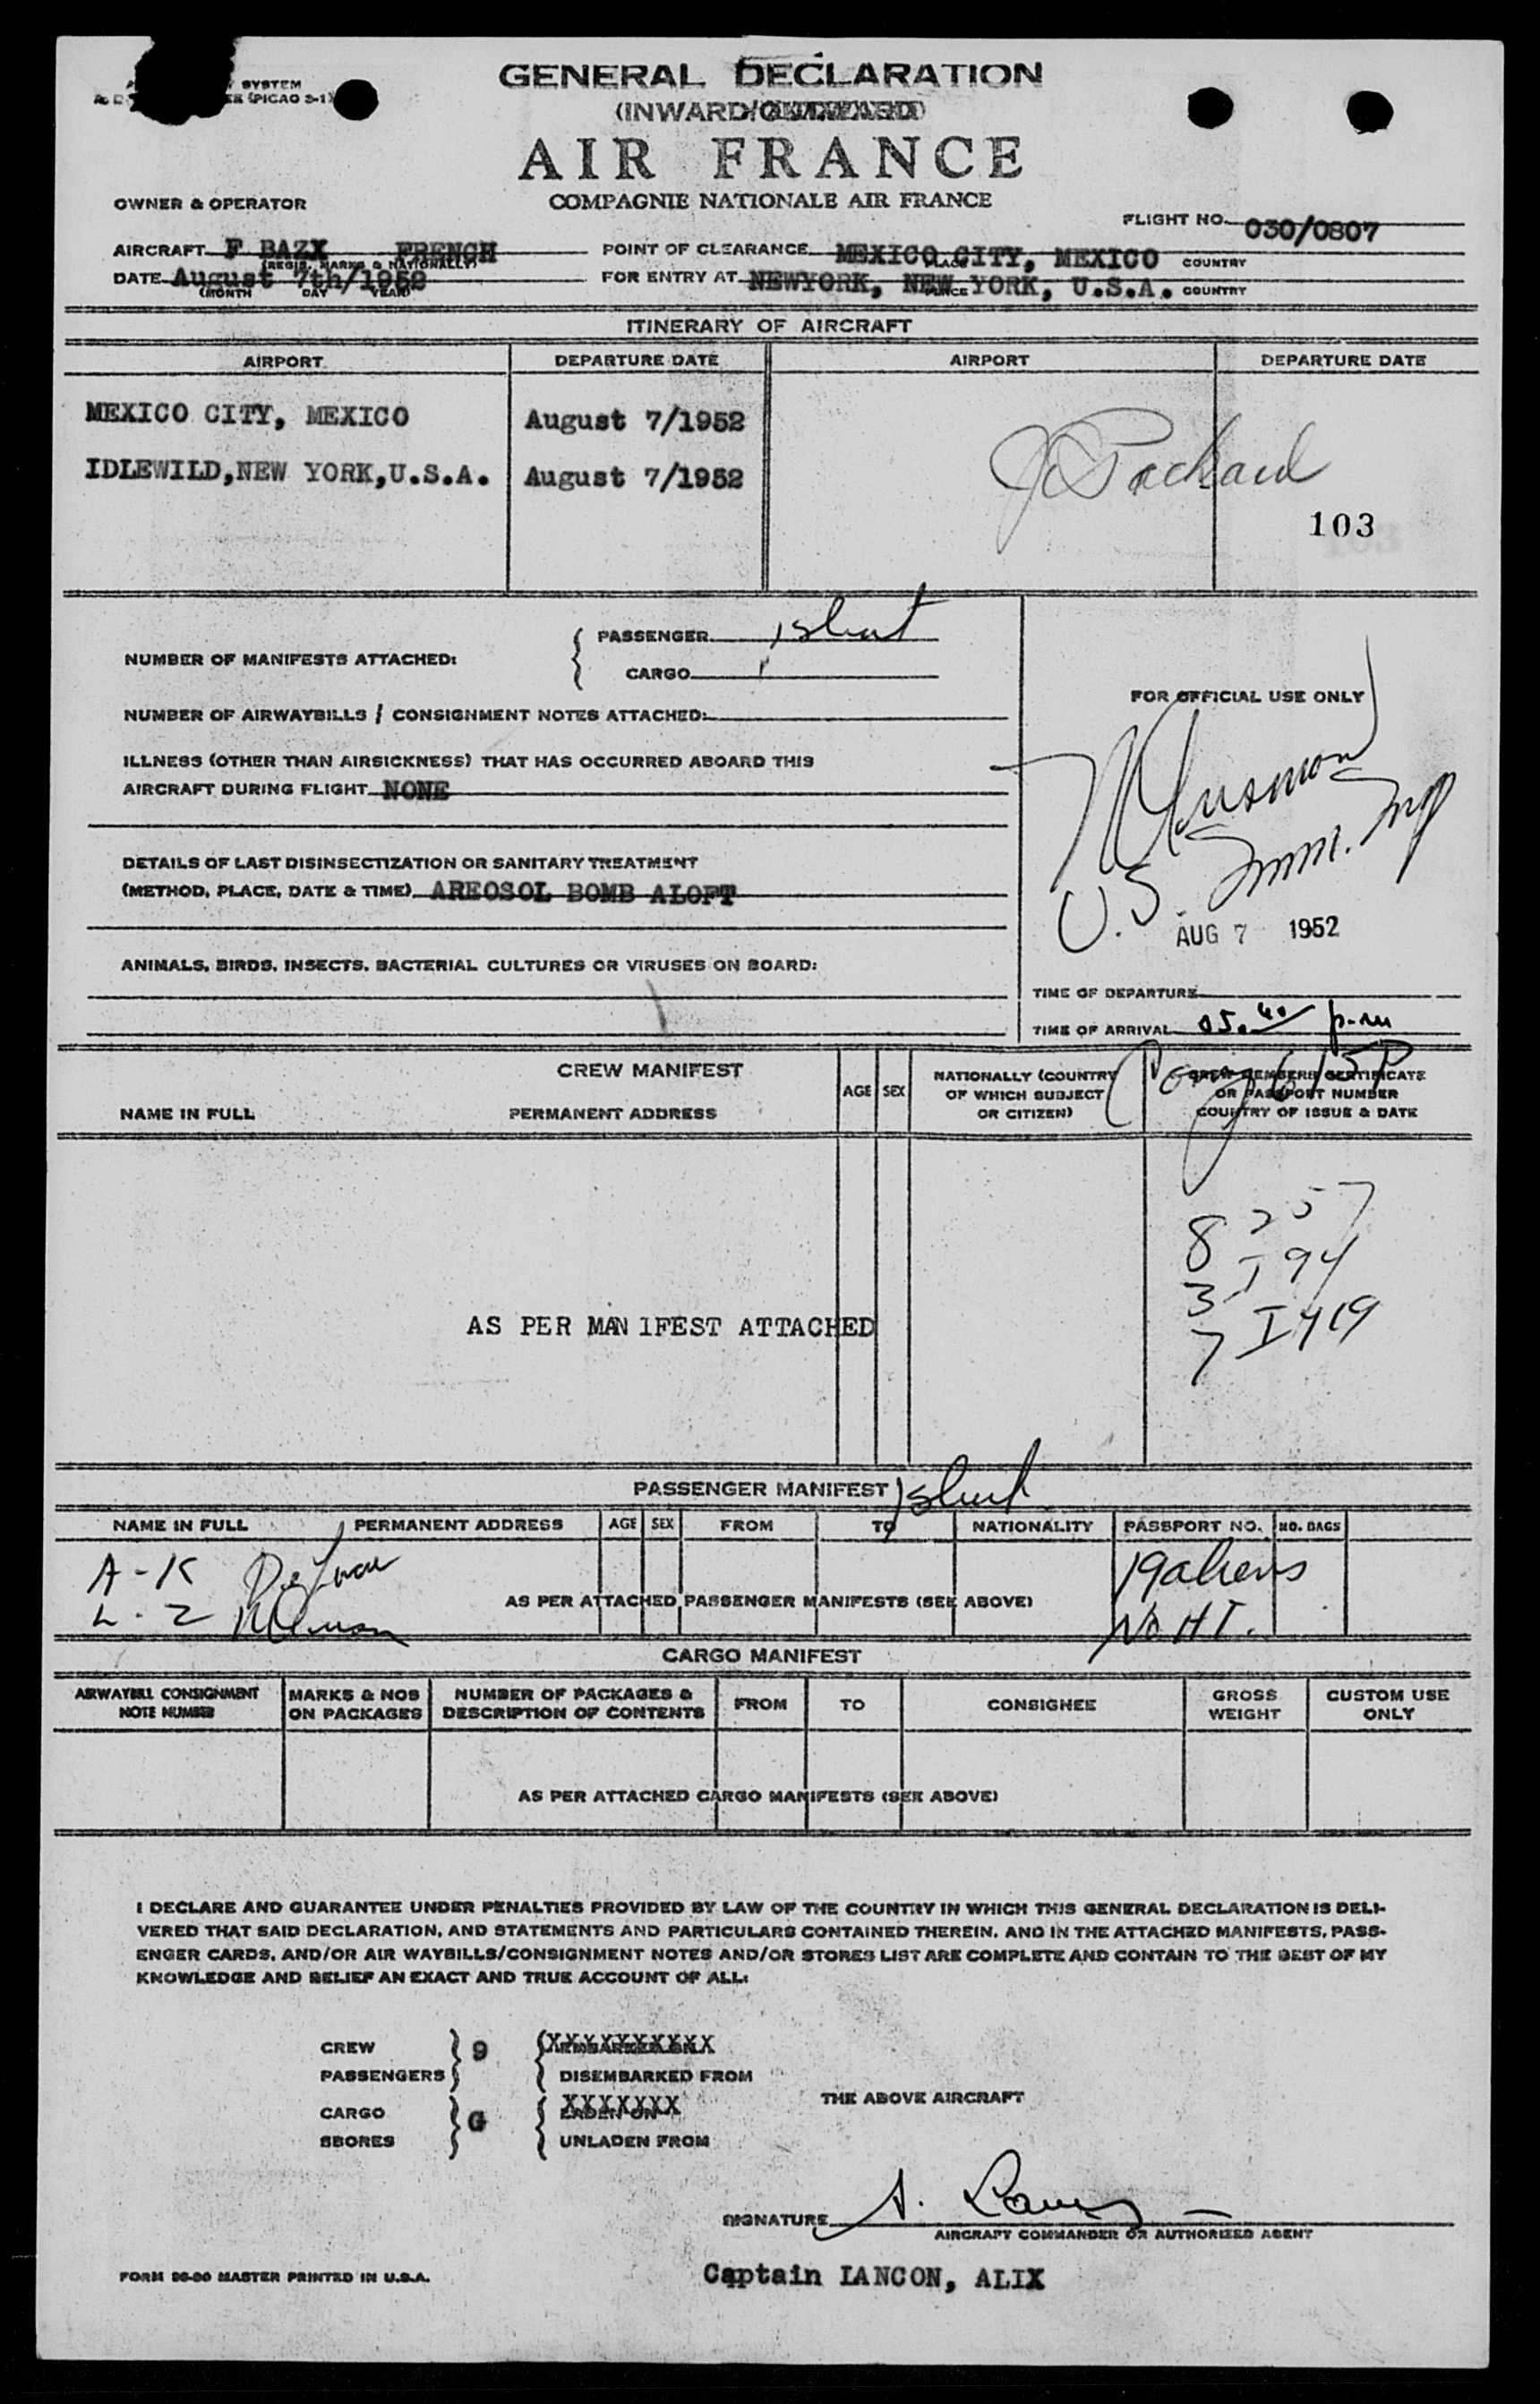 SYSTEM
(PICAO S-1)
GENERAL DECLARATION
(INWARD/OUTWARD)
AIR FRANCE
COMPAGNIE NATIONALE AIR FRANCE
OWNER & OPERATOR
FLIGHT NO. 030/0807
AIRCRAFT F BAZX FRENCH
(REGIS. MARKS & NATIONALLY)
POINT OF CLEARANCE MEXICO CITY, MEXICO
PLACE COUNTRY
DATE August 7th/1952
(MONTH DAY YEAR)
FOR ENTRY AT NEWYORK, NEW YORK, U.S.A.
PLACE COUNTRY
ITINERARY OF AIRCRAFT
AIRPORT DEPARTURE DATE AIRPORT DEPARTURE DATE
MEXICO CITY, MEXICO August 7/1952
IDLEWILD,NEW YORK,U.S.A. August 7/1952
Packard
103
NUMBER OF MANIFESTS ATTACHED:
PASSENGER 1 sheet
CARGO
NUMBER OF AIRWAYBILLS / CONSIGNMENT NOTES ATTACHED:
ILLNESS (OTHER THAN AIRSICKNESS) THAT HAS OCCURRED ABOARD THIS
AIRCRAFT DURING FLIGHT NONE
DETAILS OF LAST DISINSECTIZATION OR SANITARY TREATMENT
(METHOD, PLACE, DATE & TIME) AREOSOL BOMB ALOFT
ANIMALS, BIRDS, INSECTS, BACTERIAL CULTURES OR VIRUSES ON BOARD:
FOR OFFICIAL USE ONLY
U.S. Imm. Insp
AUG 7 1952
TIME OF DEPARTURE
TIME OF ARRIVAL 05.40 p-m
615P
CREW MANIFEST
NAME IN FULL PERMANENT ADDRESS
AGE SEX
NATIONALLY (COUNTRY
OF WHICH SUBJECT
OR CITIZEN)
CREW MEMBERS CERTIFICATE
OR PASSPORT NUMBER
COUNTRY OF ISSUE & DATE
8 257
3 I 94
7 I 419
AS PER MANIFEST ATTACHED
PASSENGER MANIFEST 1 sheet
NAME IN FULL PERMANENT ADDRESS AGE SEX FROM TO NATIONALITY PASSPORT NO. NO. BAGS
A-K
L-Z
19 aliens
No HT.
AS PER ATTACHED PASSENGER MANIFESTS (SEE ABOVE)
CARGO MANIFEST
AIRWAYBILL CONSIGNMENT
NOTE NUMBER
MARKS & NOS
ON PACKAGES
NUMBER OF PACKAGES &
DESCRIPTION OF CONTENTS
FROM
TO
CONSIGNEE
GROSS
WEIGHT
CUSTOM USE
ONLY
AS PER ATTACHED CARGO MANIFESTS (SEE ABOVE)
I DECLARE AND GUARANTEE UNDER PENALTIES PROVIDED BY LAW OF THE COUNTRY IN WHICH THIS GENERAL DECLARATION IS DELI-
VERED THAT SAID DECLARATION, AND STATEMENTS AND PARTICULARS CONTAINED THEREIN, AND IN THE ATTACHED MANIFESTS, PASS-
ENGER CARDS, AND/OR AIR WAYBILLS/CONSIGNMENT NOTES AND/OR STORES LIST ARE COMPLETE AND CONTAIN TO THE BEST OF MY
KNOWLEDGE AND BELIEF AN EXACT AND TRUE ACCOUNT OF ALL:
CREW
PASSENGERS
9
XXXXXXXXXX
DISEMBARKED FROM
THE ABOVE AIRCRAFT
CARGO
SBORES
G
XXXXXXX
LADEN ON
UNLADEN FROM
SIGNATURE
AIRCRAFT COMMANDER OR AUTHORIZED AGENT
Captain LANCON, ALIX
FORM 96-00 MASTER PRINTED IN U.S.A.